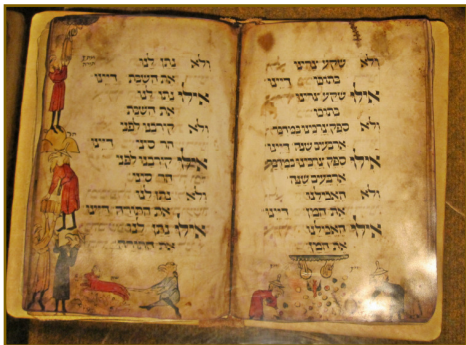 ולא שקע צרינו
בתוכו דיינו
אילו שקע צרינו
בתוכו
ולא ספק צרכינו במדבר
ארבעים שנה דיינו
אילו ספק צרכינו במדבר
ארבעים שנה
ולא האכילנו
את המן דיינו
אילו האכילנו
את המן
ולא נתן לנו
את השבת דיינו
אילו נתן לנו
את השבת
ולא קירבנו לפני
הר סיני דיינו
אילו קירבנו לפני
הר סיני
ולא נתן לנו
את התורה דיינו
אילו נתן לנו
את התורה